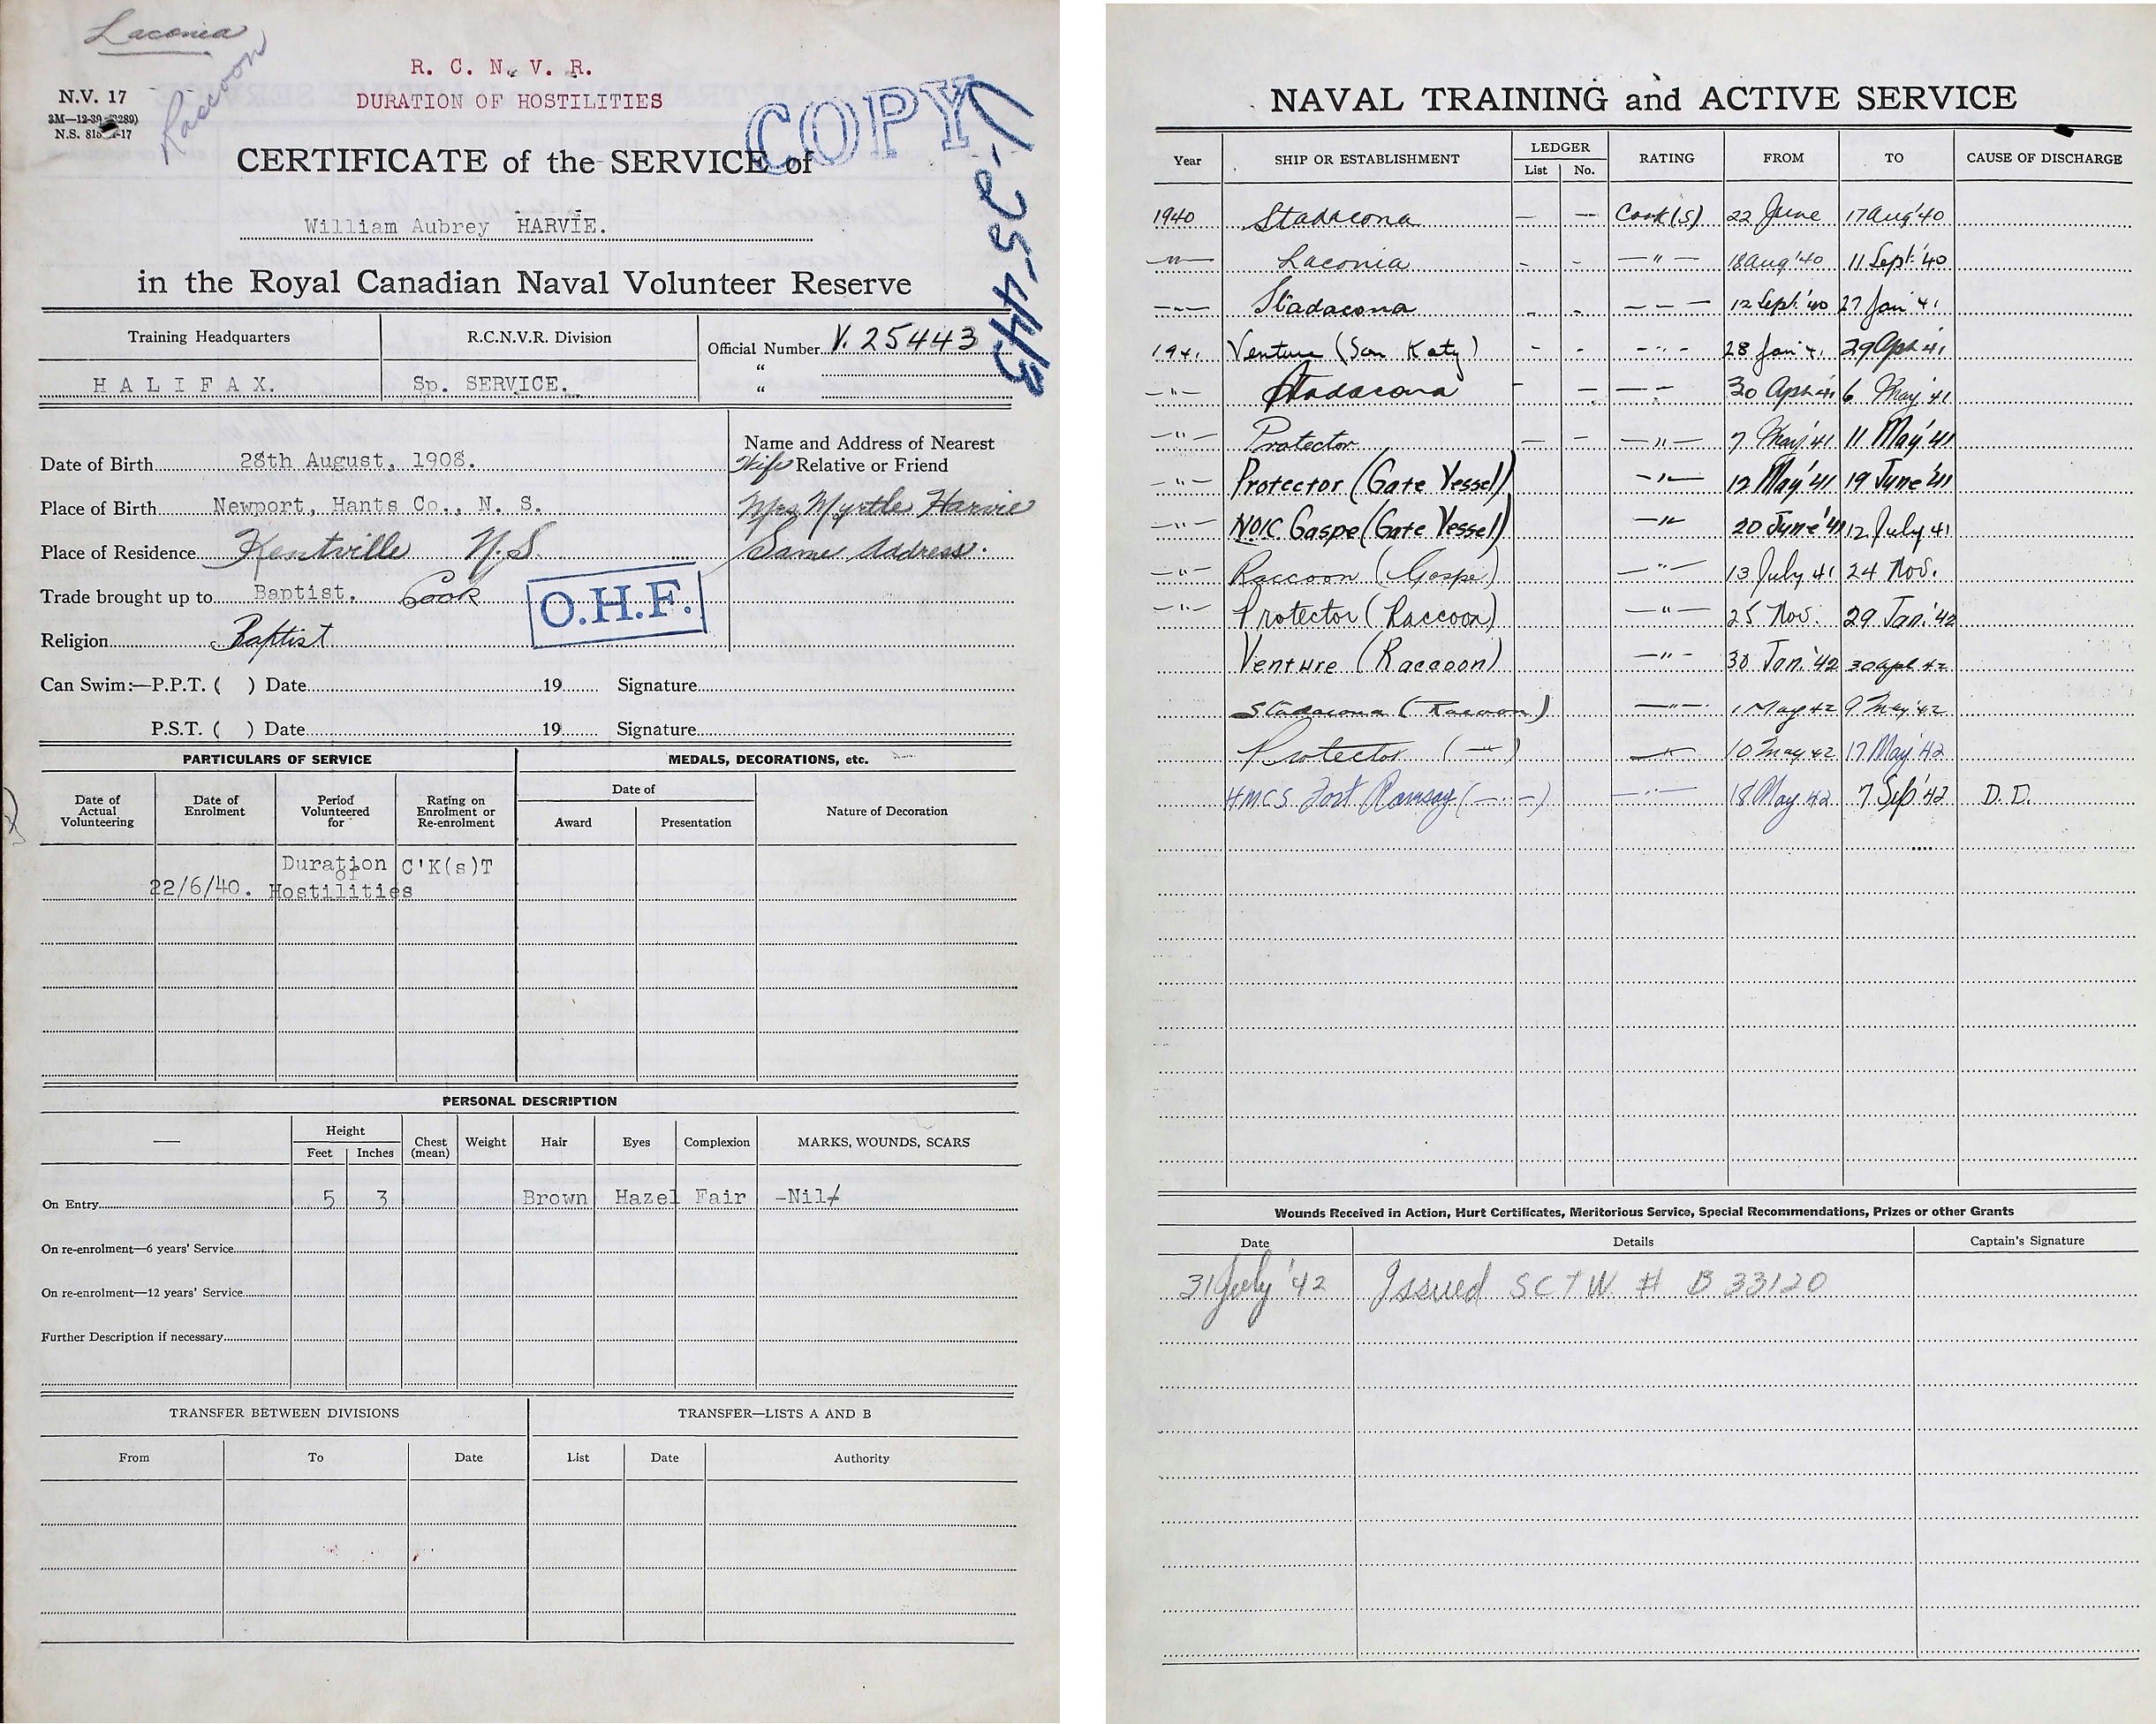 Laconia
Raccoon
R. C. N. V. R.
DURATION OF HOSTILITIES
N.V. 17
COPY
V-25443
CERTIFICATE of the SERVICE of
William Aubrey HARVIE.
in the Royal Canadian Naval Volunteer Reserve
Training Headquarters R.C.N.V.R. Division Official Number V. 25443
“
HALIFAX. Sp. SERVICE. “
Name and Address of Nearest
Date of Birth 28th August, 1908. Wife Relative or Friend
Place of Birth Newport, Hants Co., N. S. Mrs Myrtle Harvie
Place of Residence Kentville N.S. Same Address.
Trade brought up to Baptist. Cook O.H.F.
Religion Baptist
Can Swim:—P.P.T. ( ) Date 19 Signature
P.S.T. ( ) Date 19 Signature
PARTICULARS OF SERVICE MEDALS, DECORATIONS, etc.
Date of Actual Volunteering Date of Enrolment Period Volunteered for Rating on Enrolment or Re-enrolment Date of Nature of Decoration
Award Presentation
Duration of C'K(s)T
22/6/40. Hostilities
PERSONAL DESCRIPTION
— Height Chest (mean) Weight Hair Eyes Complexion MARKS, WOUNDS, SCARS
Feet Inches
On Entry 5 3 Brown Hazel Fair -Nil-
On re-enrolment—6 years' Service
On re-enrolment—12 years' Service
Further Description if necessary
TRANSFER BETWEEN DIVISIONS TRANSFER—LISTS A AND B
From To Date List Date Authority
NAVAL TRAINING and ACTIVE SERVICE
Year SHIP OR ESTABLISHMENT LEDGER RATING FROM TO CAUSE OF DISCHARGE
List No.
1940 Stadacona — — Cook(S) 22 June 17 Aug '40
—"— Laconia - - —"— 18 Aug '40 11 Sept. '40
—"— Stadacona - - — — — 12 Sept. '40 27 Jan '41
1941 Venture (San Katy) - - —"— 28 Jan '41 29 Apl '41
—"— Stadacona - — —"— 30 Apr 41 6 May '41
—"— Protector — — —"— 7 May '41 11 May '41
—"— Protector (Gate Vessel) —"— 12 May '41 19 June '41
—"— N.O.I.C. Gaspe (Gate Vessel) —"— 20 June '41 12 July 41
—"— Raccoon (Gaspe) —"— 13 July 41 24 Nov.
—"— Protector (Raccoon) —"— 25 Nov. 29 Jan. '42
Venture (Raccoon) —"— 30 Jan. '42 30 Apl 42
Stadacona (Racoon) —"— 1 May 42 9 May '42
Protector (—"—) —"— 10 May 42 17 May '42
H.M.C.S. Fort Ramsay (—"—) —"— 18 May 42 7 Sep '42 D.D.
Wounds Received in Action, Hurt Certificates, Meritorious Service, Special Recommendations, Prizes or other Grants
Date Details Captain's Signature
31 July '42 Issued SCTW # B 33120